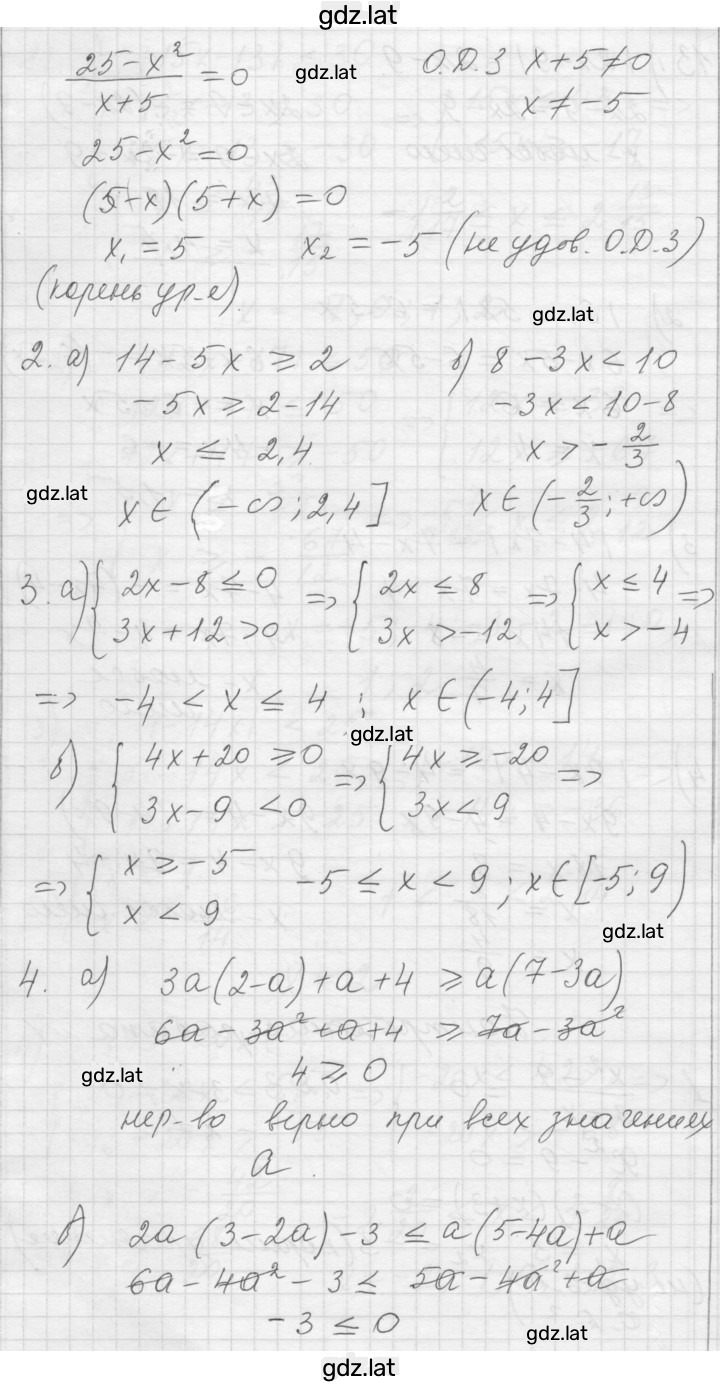 gdz.lat
(25-x²)/(x+5) = 0 gdz.lat О.Д.З x+5≠0
x≠-5
25-x²=0
(5-x)(5+x)=0
x₁=5 x₂=-5 (не удов. О.Д.З)
(корень ур-е).
gdz.lat
2. а) 14-5x⩾2 б) 8-3x<10
-5x⩾2-14 -3x<10-8
x ≤ 2,4 x>-2/3
gdz.lat x∈(-∞;2,4] x∈(-2/3;+∞)
3. а) { 2x-8≤0 ; 3x+12>0 => { 2x≤8 ; 3x>-12 => { x≤4 ; x>-4 =>
=> -4<x≤4; x∈(-4;4]
gdz.lat
б) { 4x+20⩾0 ; 3x-9<0 => { 4x⩾-20 ; 3x<9 =>
=> { x⩾-5 ; x<9 -5≤x<9; x∈[-5;9)
gdz.lat
4. а) 3a(2-a)+a+4⩾a(7-3a)
6a-3a²+a+4⩾7a-3a²
gdz.lat 4⩾0
нер-во верно при всех значениях
a.
б) 2a(3-2a)-3≤a(5-4a)+a
6a-4a²-3≤5a-4a²+a
-3≤0
gdz.lat
gdz.lat